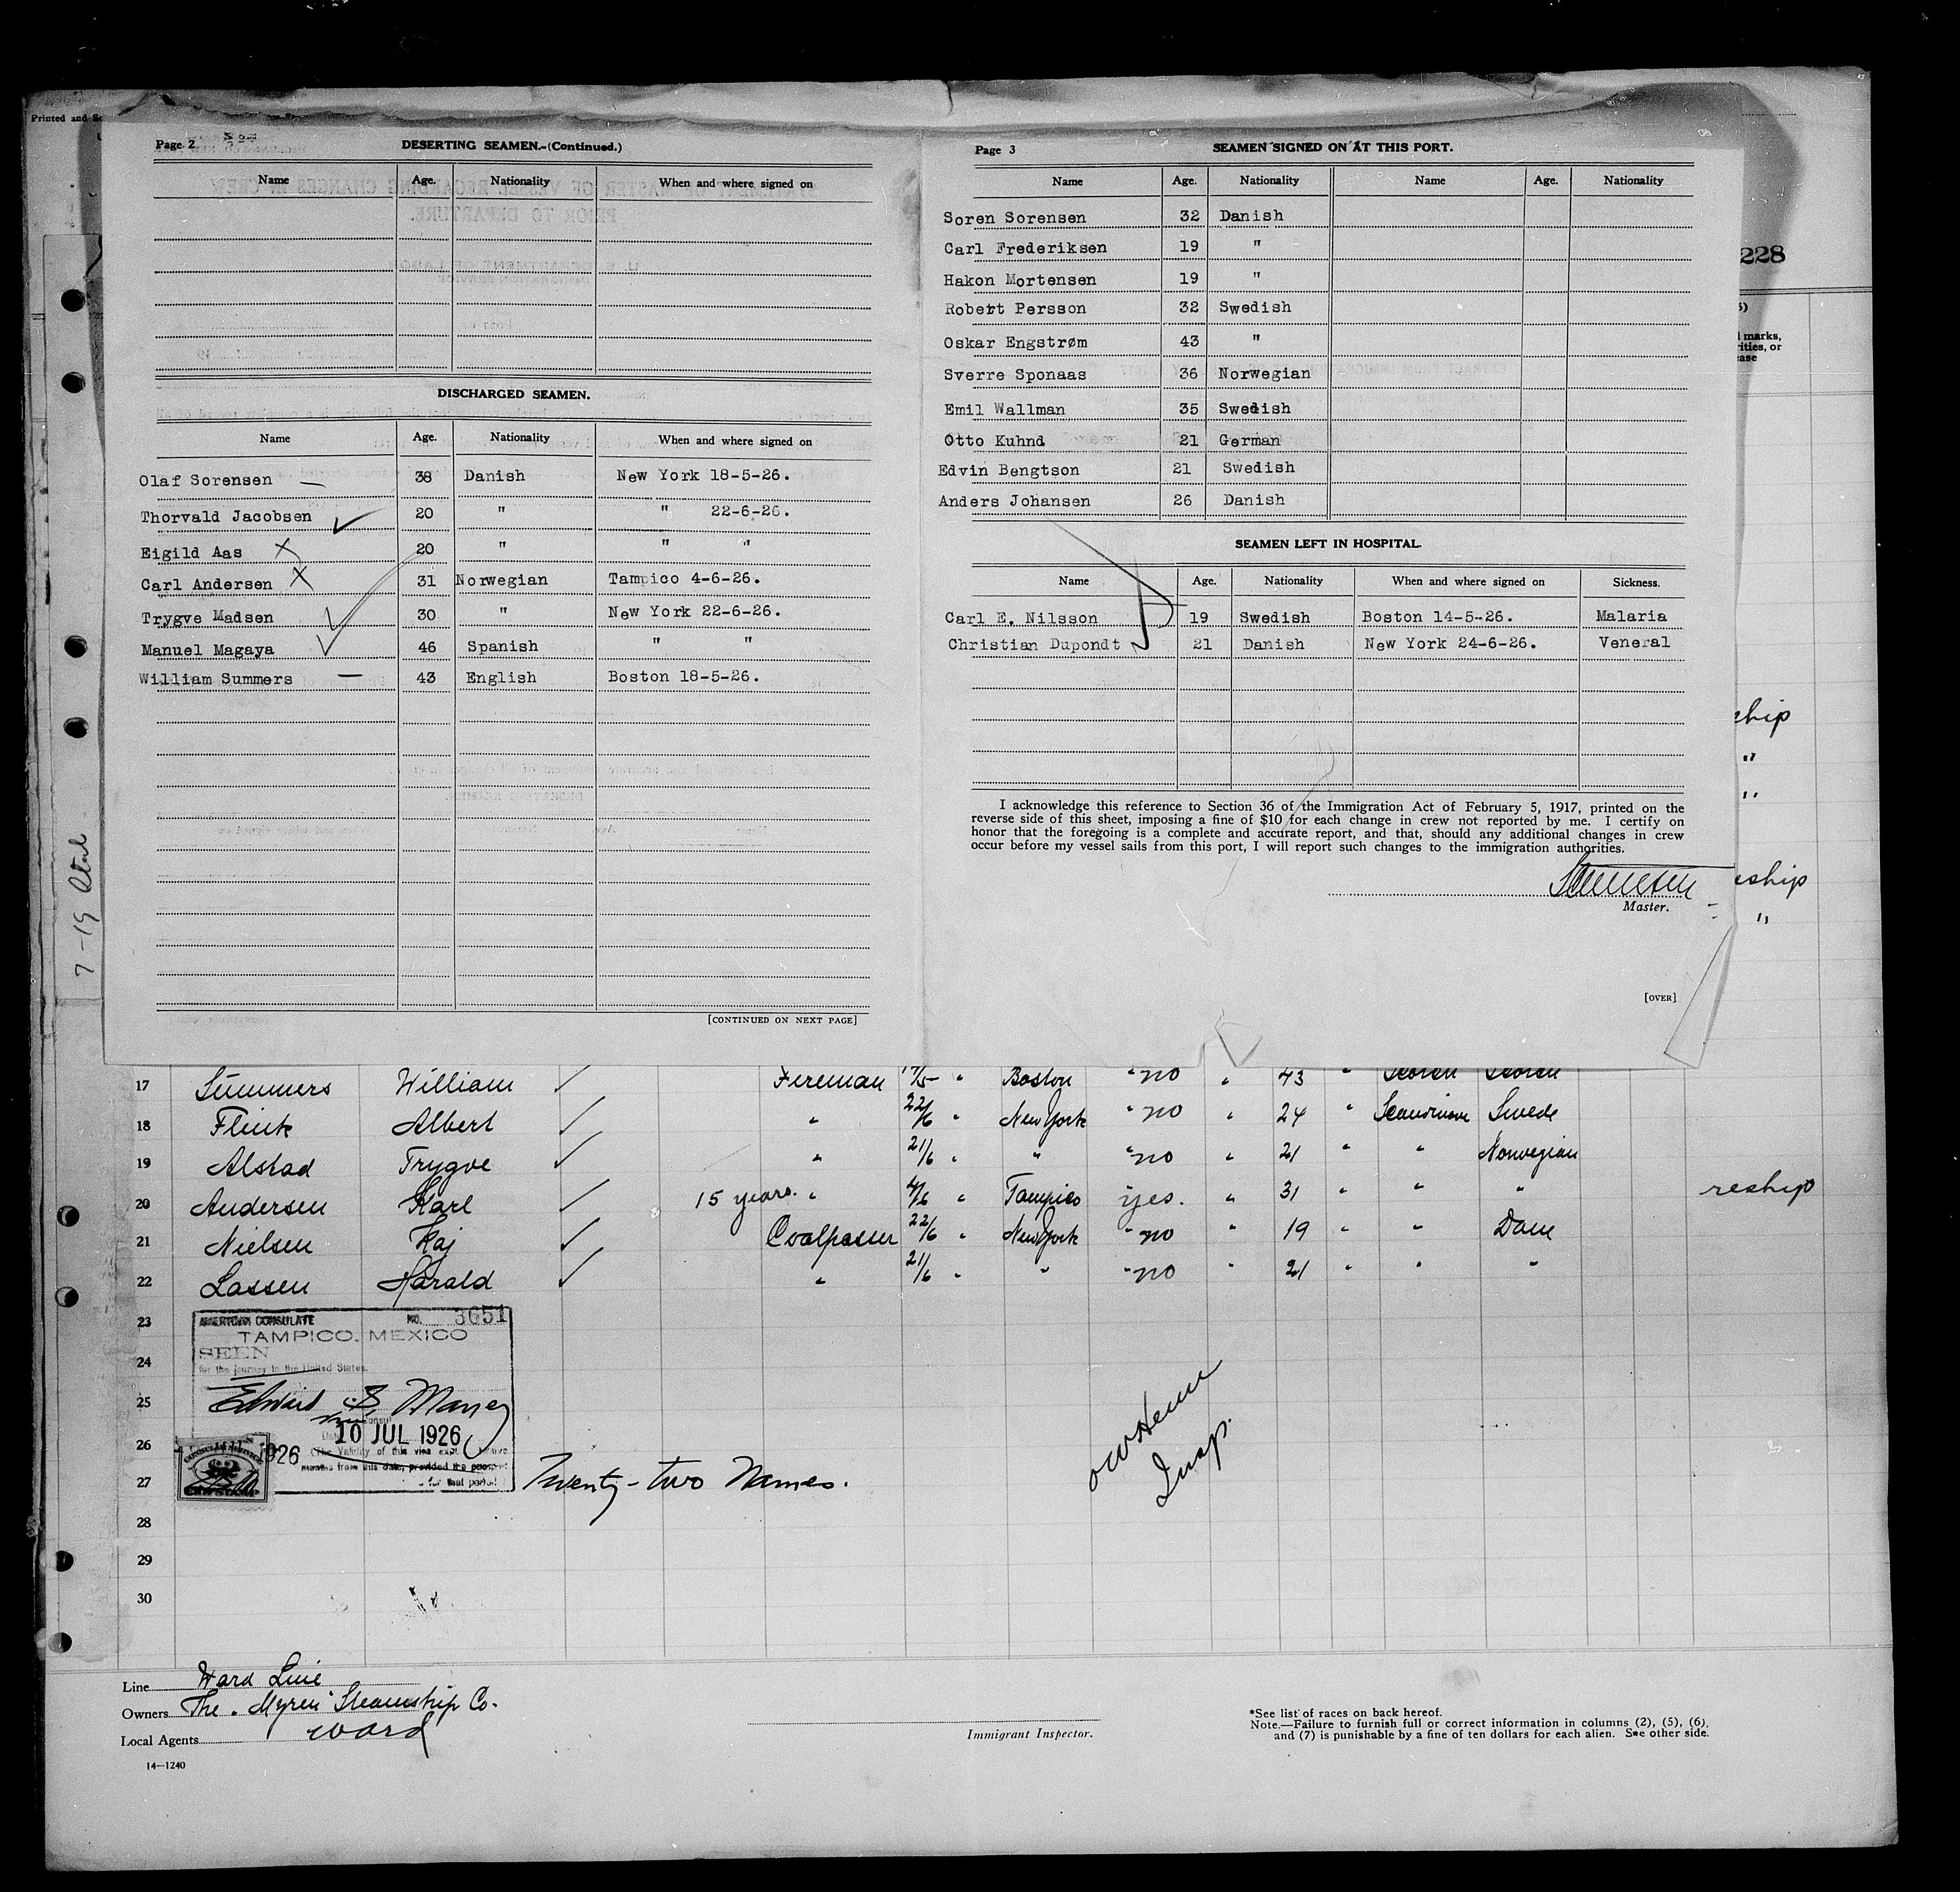 Printed and
Page 2
DESERTING SEAMEN.-(Continued.)
Name Age. Nationality When and where signed on
DISCHARGED SEAMEN.
Name Age. Nationality When and where signed on
Olaf Sorensen — 38 Danish New York 18-5-26.
Thorvald Jacobsen ✓ 20 " " 22-6-26.
Eigild Aas X 20 " " "
Carl Andersen X 31 Norwegian Tampico 4-6-26.
Trygve Madsen ✓ 30 " New York 22-6-26.
Manuel Magaya ✓ 46 Spanish " "
William Summers — 43 English Boston 18-5-26.
[CONTINUED ON NEXT PAGE]
Page 3
SEAMEN SIGNED ON AT THIS PORT.
Name Age. Nationality Name Age. Nationality
Soren Sorensen 32 Danish
Carl Frederiksen 19 "
Hakon Mortensen 19 "
Robert Persson 32 Swedish
Oskar Engstrøm 43 "
Sverre Sponaas 36 Norwegian
Emil Wallman 35 Swedish
Otto Kuhnd 21 German
Edvin Bengtson 21 Swedish
Anders Johansen 26 Danish
SEAMEN LEFT IN HOSPITAL.
Name Age. Nationality When and where signed on Sickness.
Carl E. Nilsson 19 Swedish Boston 14-5-26. Malaria
Christian Dupondt 21 Danish New York 24-6-26. Veneral
I acknowledge this reference to Section 36 of the Immigration Act of February 5, 1917, printed on the
reverse side of this sheet, imposing a fine of $10 for each change in crew not reported by me. I certify on
honor that the foregoing is a complete and accurate report, and that, should any additional changes in crew
occur before my vessel sails from this port, I will report such changes to the immigration authorities.
Master.
[OVER]
228
marks,
ities, or
ship
"
"
ship
"
7-19
17 Summers William ✓ Fireman " Boston " no " 43 "
18 Flink Albert ✓ " 22/6 " New York " no " 24 " Swede
19 Alstad Trygve ✓ " 21/6 " " " no " 21 " " Norwegian
20 Andersen Karl ✓ 15 years. " 4/6 " Tampico yes. " 31 " " " reship
21 Nielsen Kaj ✓ Coalpasser 22/6 " New York " no " 19 " " Dane
22 Lassen Harald ✓ " 21/6 " " " no " 21 " " "
23
24
25
26
27
28
29
30
AMERICAN CONSULATE NO. 3651
TAMPICO, MEXICO
SEEN
for the journey to the United States.
Edward S. Maney
10 JUL 1926
1926
Twenty-two Names.
Insp.
Line Ward Line
Owners The "Myren" Steamship Co.
Local Agents Ward
14—1240
Immigrant Inspector.
*See list of races on back hereof.
Note.—Failure to furnish full or correct information in columns (2), (5), (6),
and (7) is punishable by a fine of ten dollars for each alien. See other side.